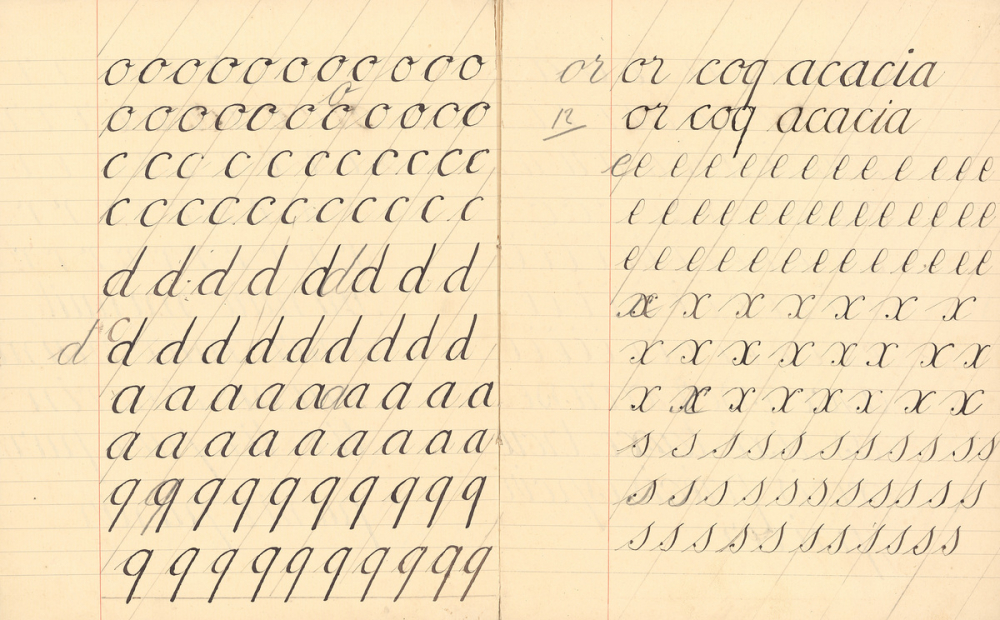 o o o o o o o o o o o
o o o o o o o o o o o
c c c c c c c c c c c
c c c c c c c c c c c
d d d d d d d d d
d d d d d d d d d d
a a a a a a a a a a
a a a a a a a a a
q q q q q q q q q q
q q q q q q q q q q
or or coq acacia
12 or coq acacia
e e e e e e e e e e e e e
e e e e e e e e e e e e e e
e e e e e e e e e e e e e
x x x x x x x
x x x x x x x x
x x x x x x x x
s s s s s s s s s s s
s s s s s s s s s s s
s s s s s s s s s s s